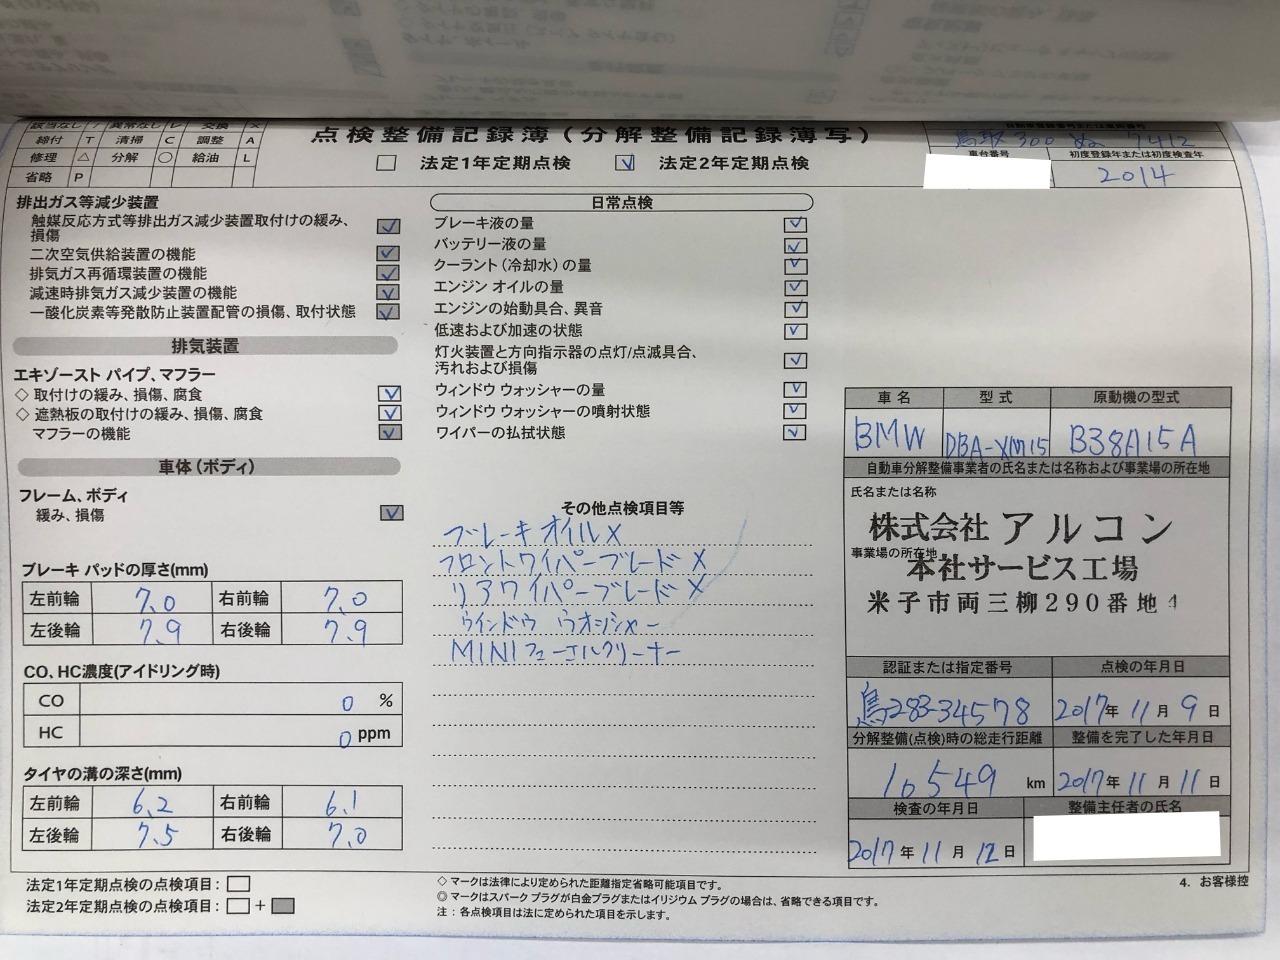 該当なし / 異常なし レ 交換 ×
締付 T 清掃 C 調整 A
修理 △ 分解 ○ 給油 L
省略 P
点検整備記録簿(分解整備記録簿写)
法定1年定期点検 ✓ 法定2年定期点検
自動車登録番号または車両番号
鳥取 300 ぬ 7412
車台番号 初度登録年または初度検査年
2014
排出ガス等減少装置
触媒反応方式等排出ガス減少装置取付けの緩み、
損傷 ✓
二次空気供給装置の機能 ✓
排気ガス再循環装置の機能 ✓
減速時排気ガス減少装置の機能 ✓
一酸化炭素等発散防止装置配管の損傷、取付状態 ✓
排気装置
エキゾースト パイプ、マフラー
◇ 取付けの緩み、損傷、腐食 ✓
◇ 遮熱板の取付けの緩み、損傷、腐食 ✓
マフラーの機能 ✓
車体(ボディ)
フレーム、ボディ
緩み、損傷 ✓
ブレーキ パッドの厚さ(mm)
左前輪 7.0 右前輪 7.0
左後輪 7.9 右後輪 7.9
CO、HC濃度(アイドリング時)
CO 0 %
HC 0 ppm
タイヤの溝の深さ(mm)
左前輪 6.2 右前輪 6.1
左後輪 7.5 右後輪 7.0
法定1年定期点検の点検項目:
法定2年定期点検の点検項目: +
日常点検
ブレーキ液の量 ✓
バッテリー液の量 ✓
クーラント(冷却水)の量 ✓
エンジン オイルの量 ✓
エンジンの始動具合、異音 ✓
低速および加速の状態 ✓
灯火装置と方向指示器の点灯/点滅具合、
汚れおよび損傷 ✓
ウィンドウ ウォッシャーの量 ✓
ウィンドウ ウォッシャーの噴射状態 ✓
ワイパーの払拭状態 ✓
その他点検項目等
ブレーキオイル×
フロントワイパーブレード×
リアワイパーブレード×
ウインドウ ウオッシャー
MINIフューエルクリーナー
◇ マークは法律により定められた距離指定省略可能項目です。
◎ マークはスパーク プラグが白金プラグまたはイリジウム プラグの場合は、省略できる項目です。
注:各点検項目は法に定められた項目を示します。
車名 型式 原動機の型式
BMW DBA-XM15 B38A15A
自動車分解整備事業者の氏名または名称および事業場の所在地
氏名または名称
株式会社 アルコン
事業場の所在地
本社サービス工場
米子市両三柳290番地4
認証または指定番号 点検の年月日
鳥283-34578 2017年 11月 9日
分解整備(点検)時の総走行距離 整備を完了した年月日
16549 km 2017年 11月 11日
検査の年月日 整備主任者の氏名
2017年 11月 12日
4. お客様控